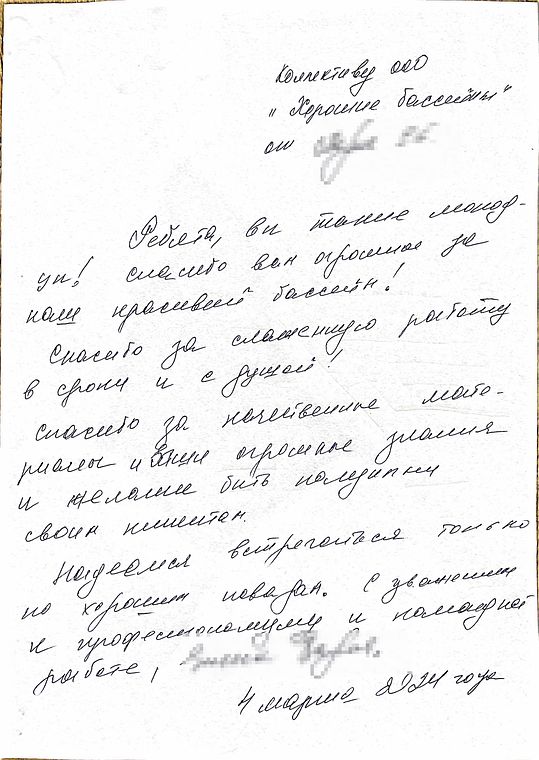 Коллективу ООО
"Хорошие бассейны"
от
Ребята, вы такие молод-
цы! Спасибо вам огромное за
наш красивый бассейн!
Спасибо за слаженную работу
в сроки и с душой!
Спасибо за качественные мате-
риалы и Ваши огромные знания
и желание быть полезными
своим клиентам.
Надеемся встречаться только
по хорошим поводам. С уважением
к профессионализму и командной
работе,
4 марта 2024 года